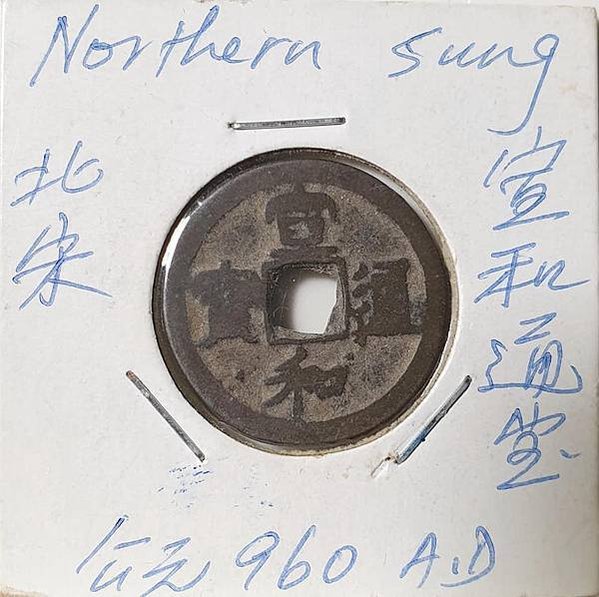 Northern Sung
北宋
宣和通宝
宣和通寶
公元 960 A.D